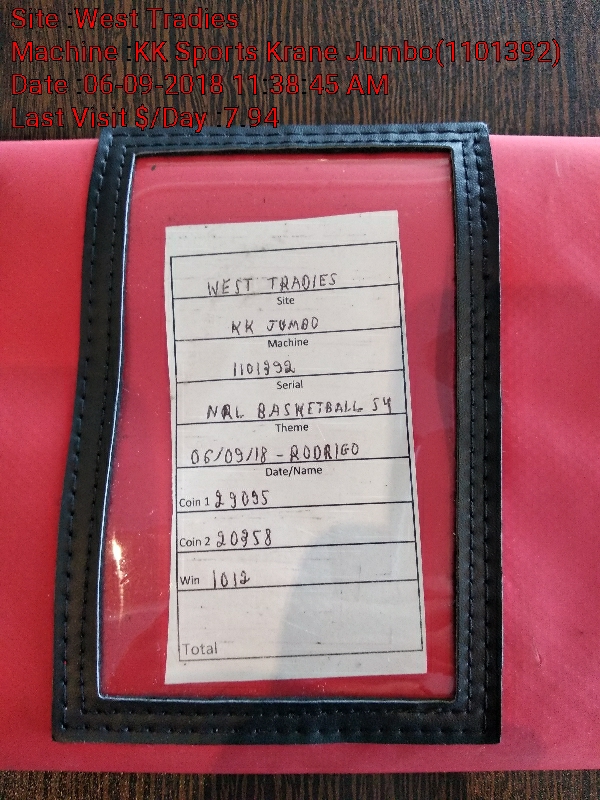 Site :West Tradies
Machine :KK Sports Krane Jumbo(1101392)
Date :06-09-2018 11:38:45 AM
Last Visit $/Day :7.94
WEST TRADIES
Site
KK JUMBO
Machine
1101392
Serial
NRL BASKETBALL S4
Theme
06/09/18 - RODRIGO
Date/Name
Coin 1 29095
Coin 2 20958
Win 1012
Total